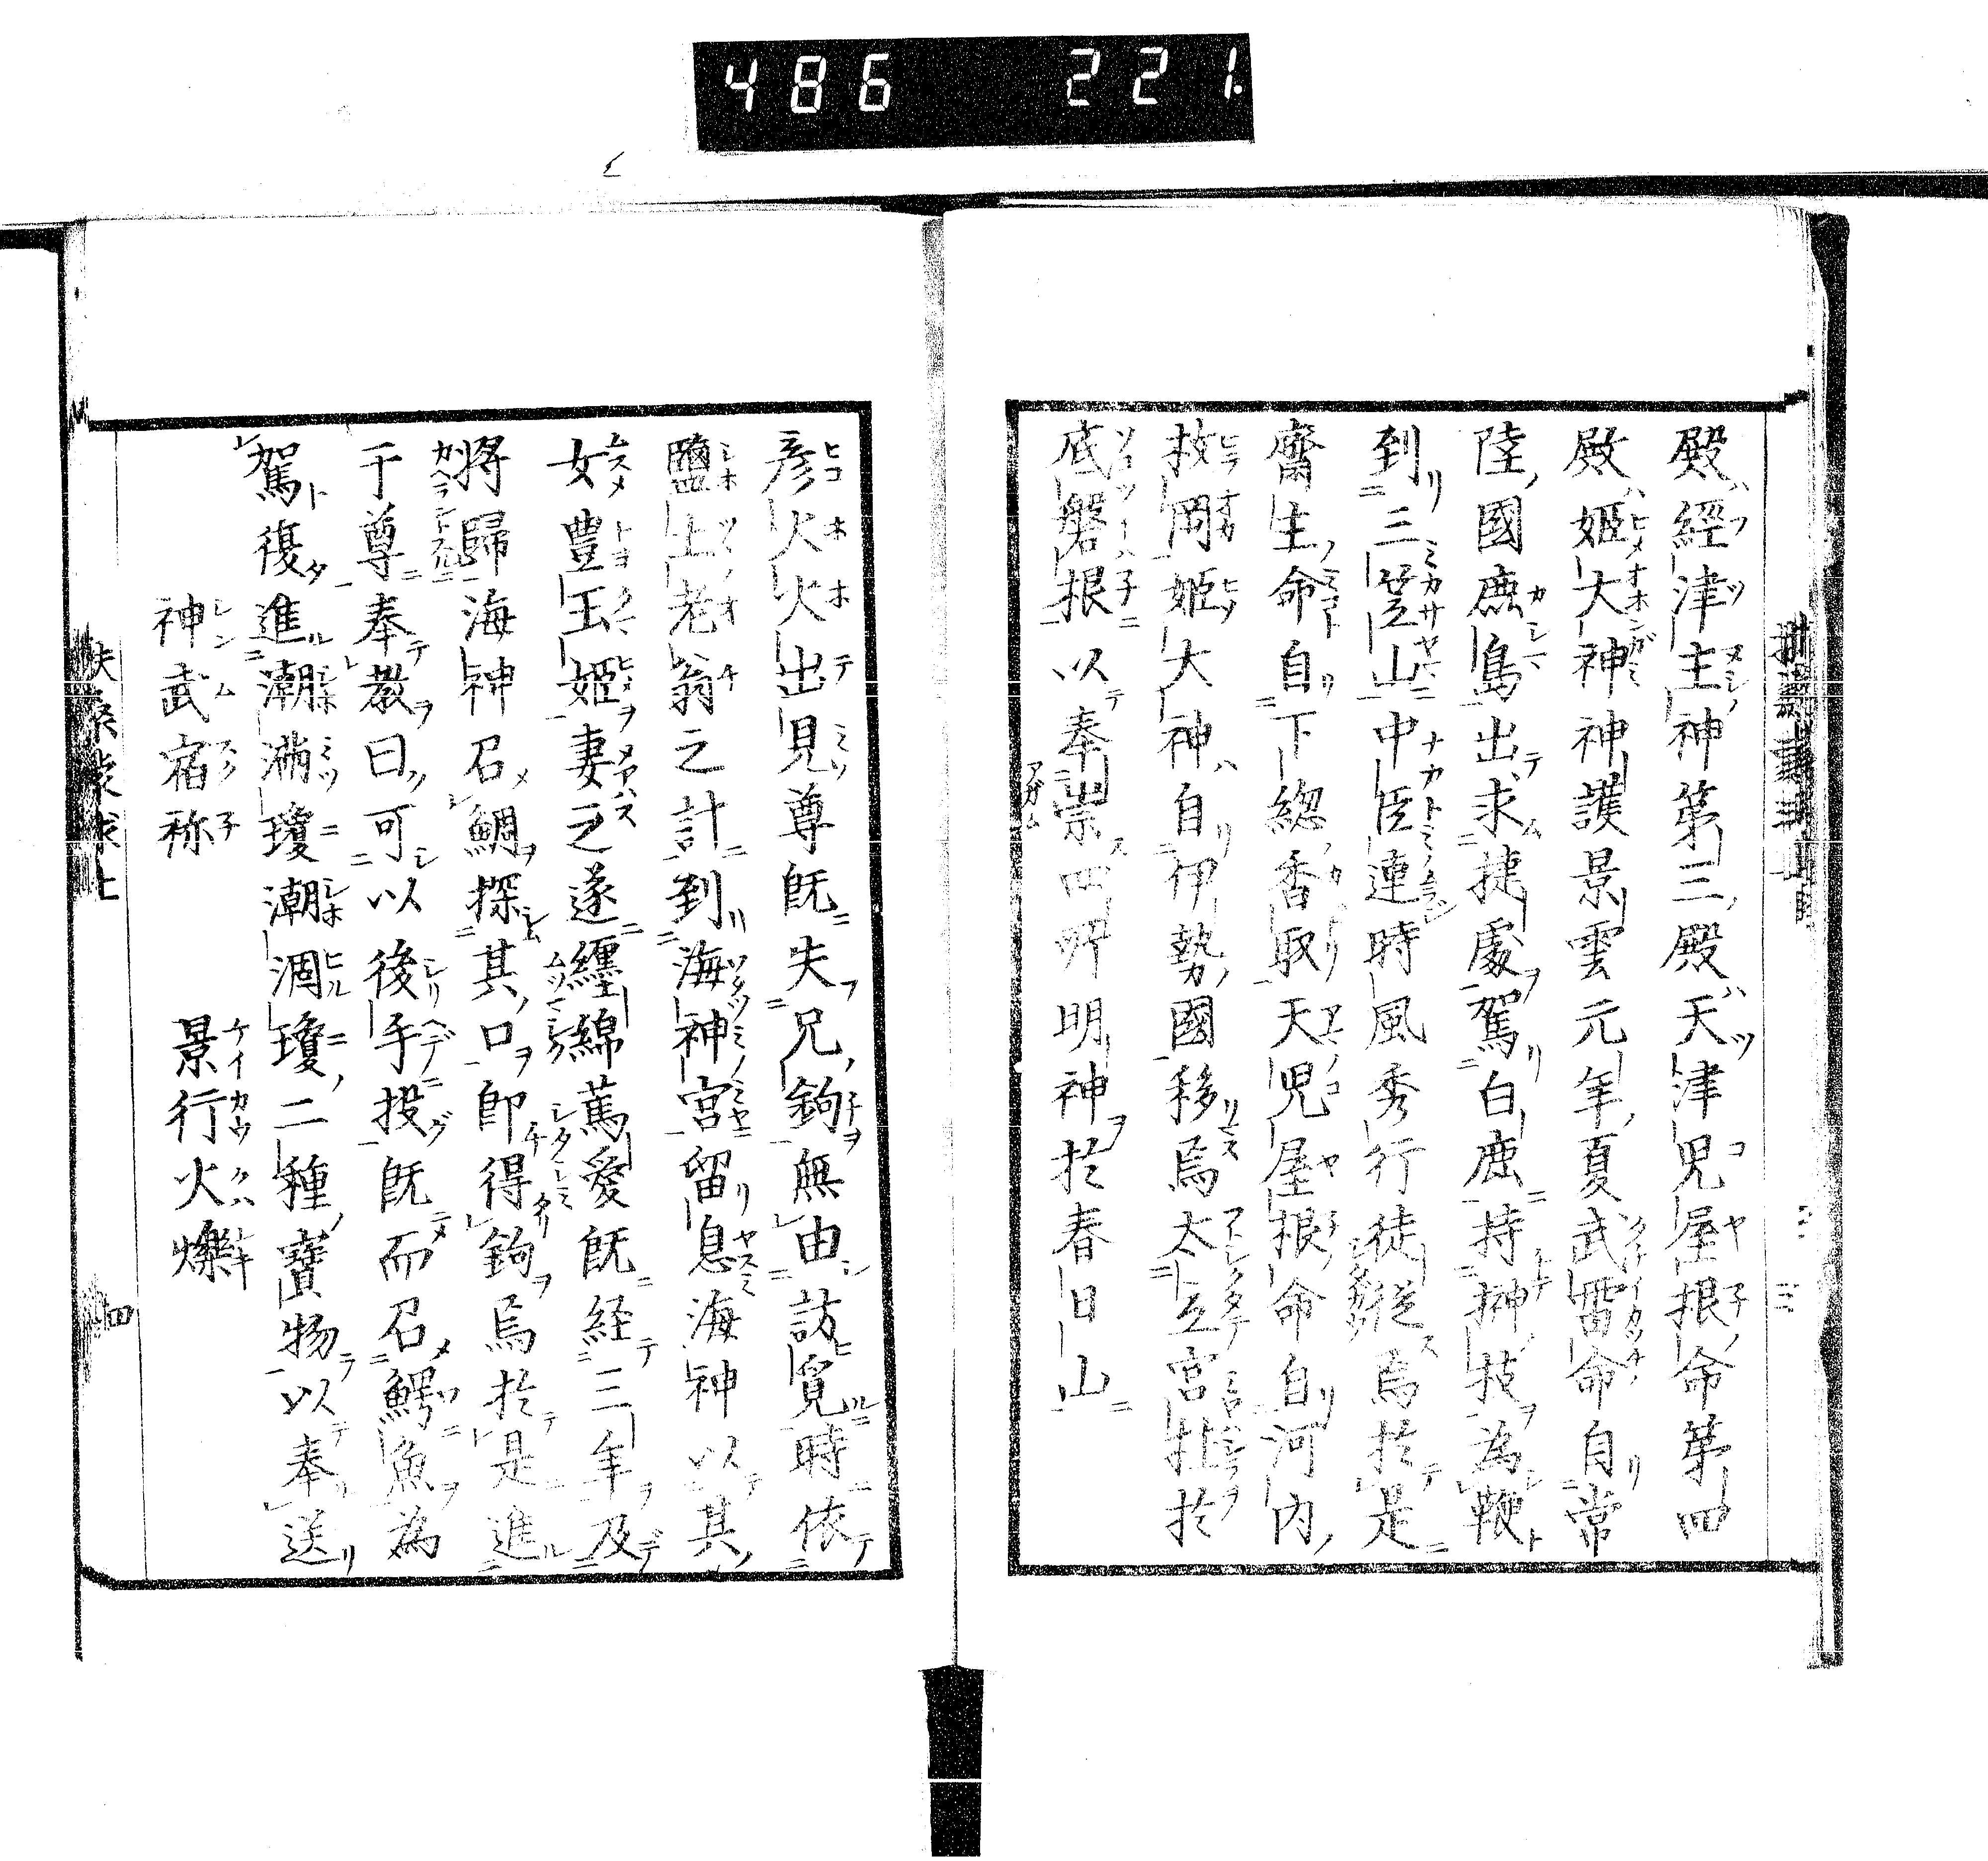 486 221
殿經津主神第三殿天津児屋根命第四
殿姬大神神護景雲元年夏武雷命自常
陸國鹿島出求捷處駕白鹿持榊枝為鞭
到三笠山中臣連時風秀行徒從焉於是
齋主命自下總香取天児屋根命自河内
枚岡姬大神自伊勢國移焉太立宮社於
底磐根以奉崇四所明神於春日山
彥火火出見尊既失兄鉤無由訪覓時依
鹽土老翁之計到海神宮留息海神以其
女豊玉姬妻之遂纏綿篤愛既経三年及
將歸海神召鯛探其口即得鉤焉於是進
于尊奉教曰可以後手投既而召鰐魚為
駕復進潮満瓊潮涸瓊二種寶物以奉送
神武宿称 景行火爍
扶桑蒙求上 四